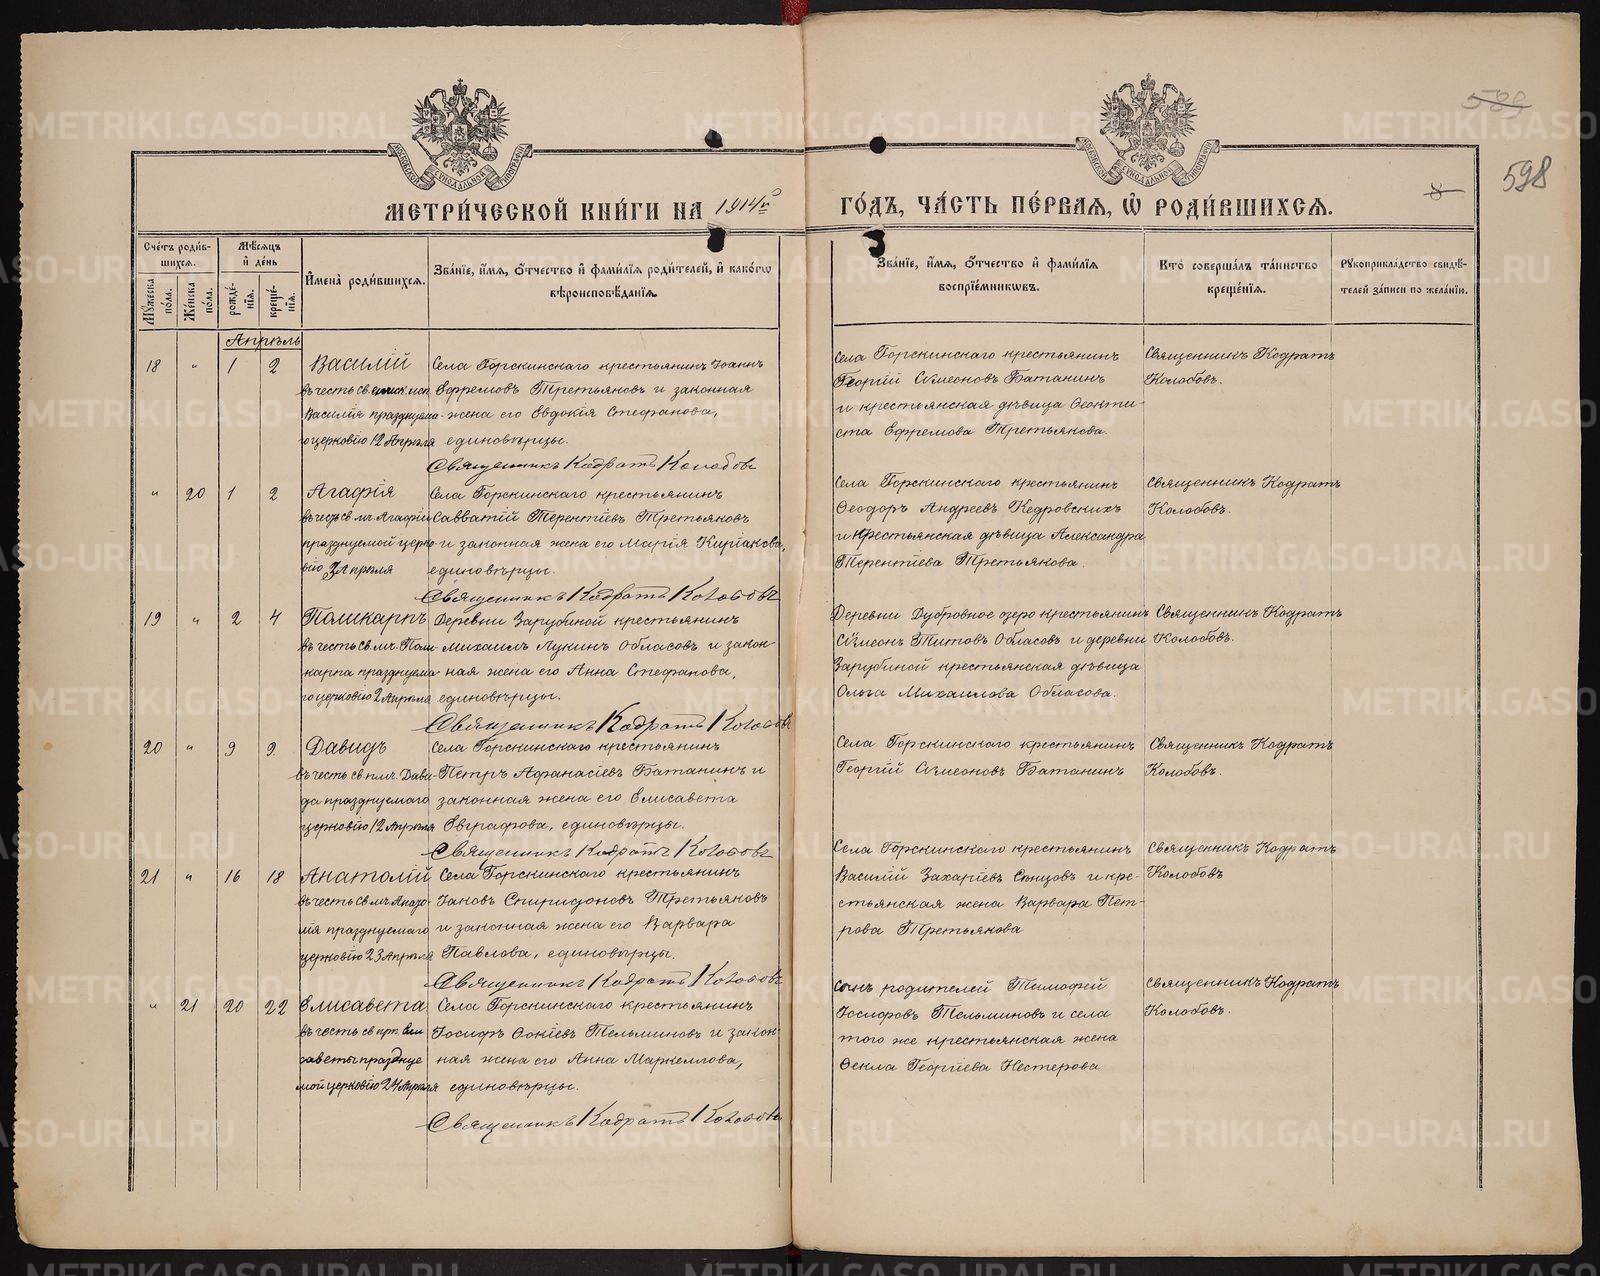 589
598
8
МЕТРИ́ЧЕСКОЙ КНИ́ГИ НА 1914й
ГО́ДЪ, ЧА́СТЬ ПЕ́РВАЯ, Ѡ РОДИ́ВШИХСЯ.
Сче́тъ роди́в-
шихся.
Мѣ́сяцъ
и҆ де́нь
Мꙋ́жеска
по́ла.
Же́нска
по́ла.
рожде́-
нія.
креще́-
нія.
И҆мена̀ роди́вшихся.
Зва́ніе, и҆́мя, ѻ҆́тчество и҆ фами́лїя роди́телей, и҆ како́гѡ
вѣроисповѣ́данїя.
Зва́ніе, и҆́мя, ѻ҆́тчество и҆ фами́лїя
воспрїе́мникѡвъ.
Кто̀ соверша́лъ та́инство
креще́нїя.
Рꙋкоприкла́дство свидѣ́-
телей за́писи по жела́нїю.
Апрѣль
18 " 1 2
Василій
въ честь св. исп.
Василія празднуема-
го церковію 12 Апрѣля
Села Горскинскаго крестьянинъ Іоаннъ
Ефремовъ Третьяковъ и законная
жена его Евдокія Стефанова,
единовѣрцы.
Священникъ Кодратъ Колобовъ
Села Горскинскаго крестьянинъ
Георгій Сѵмеоновъ Батанинъ
и крестьянская дѣвица Ѳеокти-
ста Ефремова Третьякова.
Священникъ Кодратъ
Колобовъ.
" 20 1 2
Агафія
въ честь св. мч. Агафіи
празднуемой церко-
вію Апрѣля
Села Горскинскаго крестьянинъ
Савватій Терентіевъ Третьяковъ
и законная жена его Марія Киріакова,
единовѣрцы.
Священникъ Кодратъ Колобовъ
Села Горскинскаго крестьянинъ
Ѳеодоръ Андреевъ Кедровскихъ
и крестьянская дѣвица Александра
Терентіева Третьякова.
Священникъ Кодратъ
Колобовъ.
19 " 2 4
Поликарпъ
въ честь св. мч. Поли-
карпа празднуема-
го церковію 2 Апрѣля
Деревни Зарубиной крестьянинъ
Михаилъ Лукинъ Обласовъ и закон-
ная жена его Анна Стефанова,
единовѣрцы.
Священникъ Кодратъ Колобовъ
Деревни Дубровное озеро крестьянинъ
Сѵмеонъ Титовъ Обласовъ и деревни
Зарубиной крестьянская дѣвица
Ольга Михаилова Обласова.
Священникъ Кодратъ
Колобовъ.
20 " 9 9
Давидъ
въ честь св. Дави-
да празднуемаго
церковію 12 Апрѣля
Села Горскинскаго крестьянинъ
Петръ Аѳанасіевъ Батанинъ и
законная жена его Елисавета
Евграфова, единовѣрцы.
Священникъ Кодратъ Колобовъ
Села Горскинскаго крестьянинъ
Георгій Сѵмеоновъ Батанинъ
Священникъ Кодратъ
Колобовъ.
21 " 16 18
Анатолій
въ честь св. мч. Анато-
лія празднуемаго
церковію 23 Апрѣля
Села Горскинскаго крестьянинъ
Іаковъ Спиридоновъ Третьяковъ
и законная жена его Варвара
Павлова, единовѣрцы.
Священникъ Кодратъ Колобовъ
Села Горскинскаго крестьянинъ
Василій Захаріевъ Сѣнцовъ и кре-
стьянская жена Варвара Пет-
рова Третьякова
Священникъ Кодратъ
Колобовъ
" 21 20 22
Елисавета
въ честь св. прп. Ели
саветы празднуе
мой церковію 24 Апрѣля
Села Горскинскаго крестьянинъ
Іосифъ Ѳокіевъ Тельминовъ и закон-
ная жена его Анна Маркеллова,
единовѣрцы.
Священникъ Кодратъ Колобовъ
Сынъ родителей Тимофей
Іосифовъ Тельминовъ и села
того же крестьянская жена
Ѳекла Георгіева Нестерова
Священникъ Кодратъ
Колобовъ.